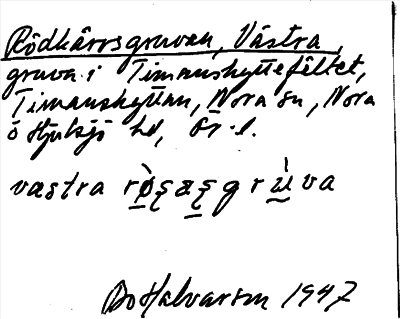 Rödkärrsgruvan, Västra,
gruva i Timanshyttefältet,
Timanshyttan, Nora sn, Nora
o Hjulsjö hd, Ör. l.
västra
Bo Halvarson 1947